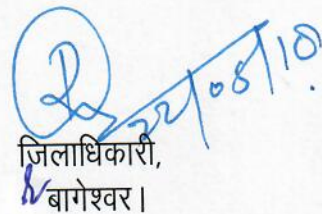 22/08/18
जिलाधिकारी,
बागेश्वर।